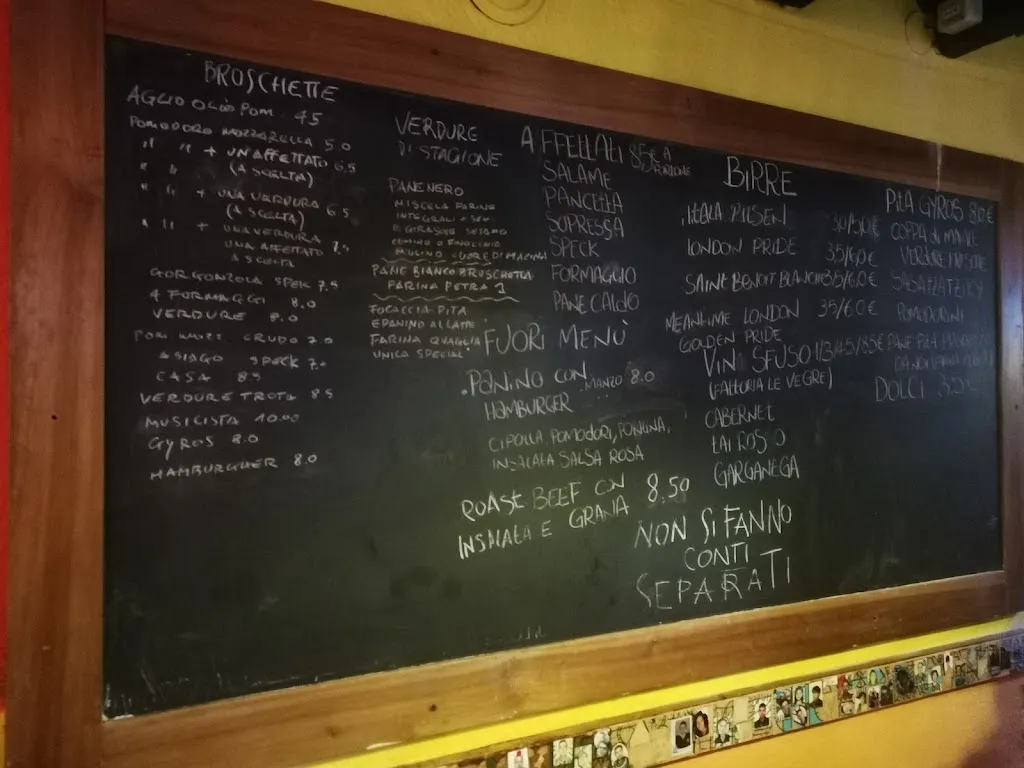 BROSCHETTE
AGLIO OLIO POM. 4.5
POMODORO MOZZARELLA 5.0
" " + UN AFFETTATO 6.5
(A SCELTA)
" " + UNA VERDURA 6.5
(A SCELTA)
" " + UNA VERDURA
UNA AFFETTATO 7.5
A SCELTA
GORGONZOLA SPEK 7.5
4 FORMAGGI 8.0
VERDURE 8.0
POM MOZZ. CRUDO 7.0
ASIAGO SPECK 7.0
CASA 8.5
VERDURE TROTA 8.5
MUSICISTA 10.00
GYROS 8.0
HAMBURGUER 8.0
VERDURE
DI STAGIONE
PANE NERO
MISCELA FARINE
INTEGRALI + SEMI
DI GIRASOLE SESAMO
CUMINO O FINOCCHIO
MULINO CUORE DI MACINA
PANE BIANCO BRUSCHETTA
FARINA PETRA 1
FOCACCIA-PITA
E PANINO AL LATTE
FARINA QUAGLIA
UNICA SPECIAL
AFFELLATI
PORZIONE
SALAME
PANCETTA
SOPRESSA
SPECK
FORMAGGIO
PANE CALDO
FUORI MENÙ
PANINO CON MANZO 8.0
HAMBURGER
CIPOLLA POMODORI, FONTINA,
INSALATA SALSA ROSA
ROAST BEEF CON 8.50
INSALATA E GRANA
BIRRE
ITALA PILSEN
LONDON PRIDE 35/60€
SAINT BENOIT BLANCHE 35/60€
MEANTIME LONDON 35/60€
GOLDEN PRIDE
VINI SFUSO
(FATTORIA LE VEGRE)
CABERNET
TAI ROSSO
GARGANEGA
NON SI FANNO
CONTI
SEPARATI
PITA GYROS 8.0€
COPPA DI MAIALE
VERDURE MISTE
SALSA TZATZIKY
POMODORINI
DOLCI 3.50€